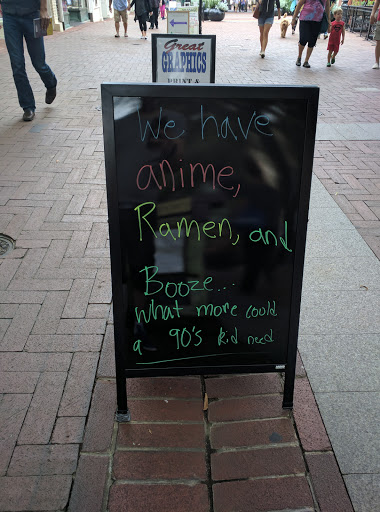 Great
GRAPHICS
PRINT &
We have
anime,
Ramen, and
Booze...
what more could
a 90's kid need